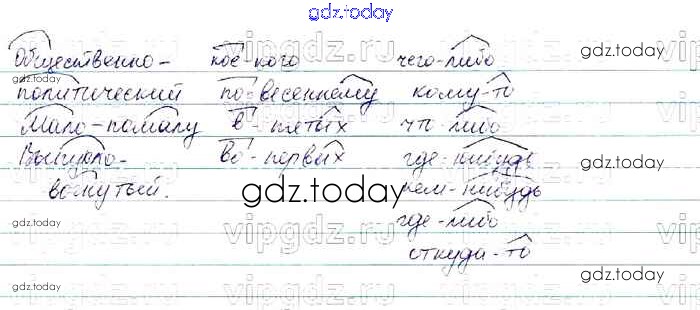 gdz.today
Общественно-
политический
Мало-помалу
Выпукло-
вогнутый.
кое-кого
по-весеннему
в-пятых
во-первых
чего-либо
кому-то
что-либо
где-нибудь
чем-нибудь
где-либо
откуда-то
gdz.today
gdz.today
gdz.today
gdz.today
gdz.today
gdz.today
vipgdz.ru
vipgdz.ru
vipgdz.ru